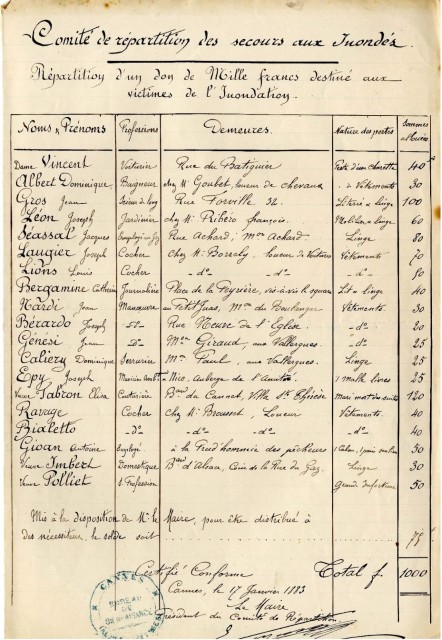 Comité de répartition des secours aux Inondés.
Répartition d'un don de Mille francs destiné aux
victimes de l'Inondation.
Noms & Prénoms Professions Demeures. Nature des pertes Sommes allouées
Dame Vincent Voiturier Rue du Batéguier Perte d'une charette 40
Albert Dominique Baigneur chez Mr Goubet, loueur de chevaux d° Vêtements 30
Gros Jean Rue Forville 32. Literie & linge 100
Léon Joseph Jardinier chez Mr Ribéro françois. Mobilier & linge 60
Séassal Jacques Employé au Gaz Rue Achard, Mon Achard. Linge 80
Laugier Joseph Cocher chez Mr Borely, loueur de Voitures Vêtements 70
Lions Louis Cocher -d°- -d°- 50
Bergamine Catherine Journalière Place de la Peyrière, vis-à-vis le square Lit & linge 40
Nardi Jean Manœuvre au Petit Juas, Mon du Boulanger Vêtements. 30
Bérardo Joseph -D°- Rue Meuse de l'Eglise. -d°- 20
Génési Jean -D°- Mon Giraud, aux Vallergues. -d°- 25
Caliéry Dominique Serrurier Mon Paul, aux Vallergues. Linge 25
Epy Joseph Nice, Auberge de l'Amitié. 1 Malle livres 25
Veuve Fabron Elisa Couturière Bard du Cannet, Ville 120
Ravage Cocher chez Mr Brousset, Loueur Vêtements. 40
Bialetto -d°- -d°- -d°- 40
Gioan Antoine Employé à la Prud'hommie des pêcheurs 30
Veuve Imbert Domestique Bard d'Alsace, Coin de la Rue du Gaz. Linge 30
Veuve Polliet s. Profession Grande infortune 50
Mis à la disposition de Mr le Maire, pour être distribué à
des nécessiteux, le solde soit 75
Certifié Conforme Total f. 1000
Cannes, le 17 Janvier 1883
Le Maire
Président du Comité de Répartition
CANNES
BUREAU DE BIENFAISANCE